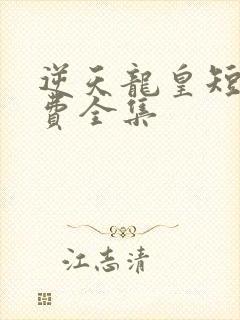 逆天龍皇短
費全集
江志清